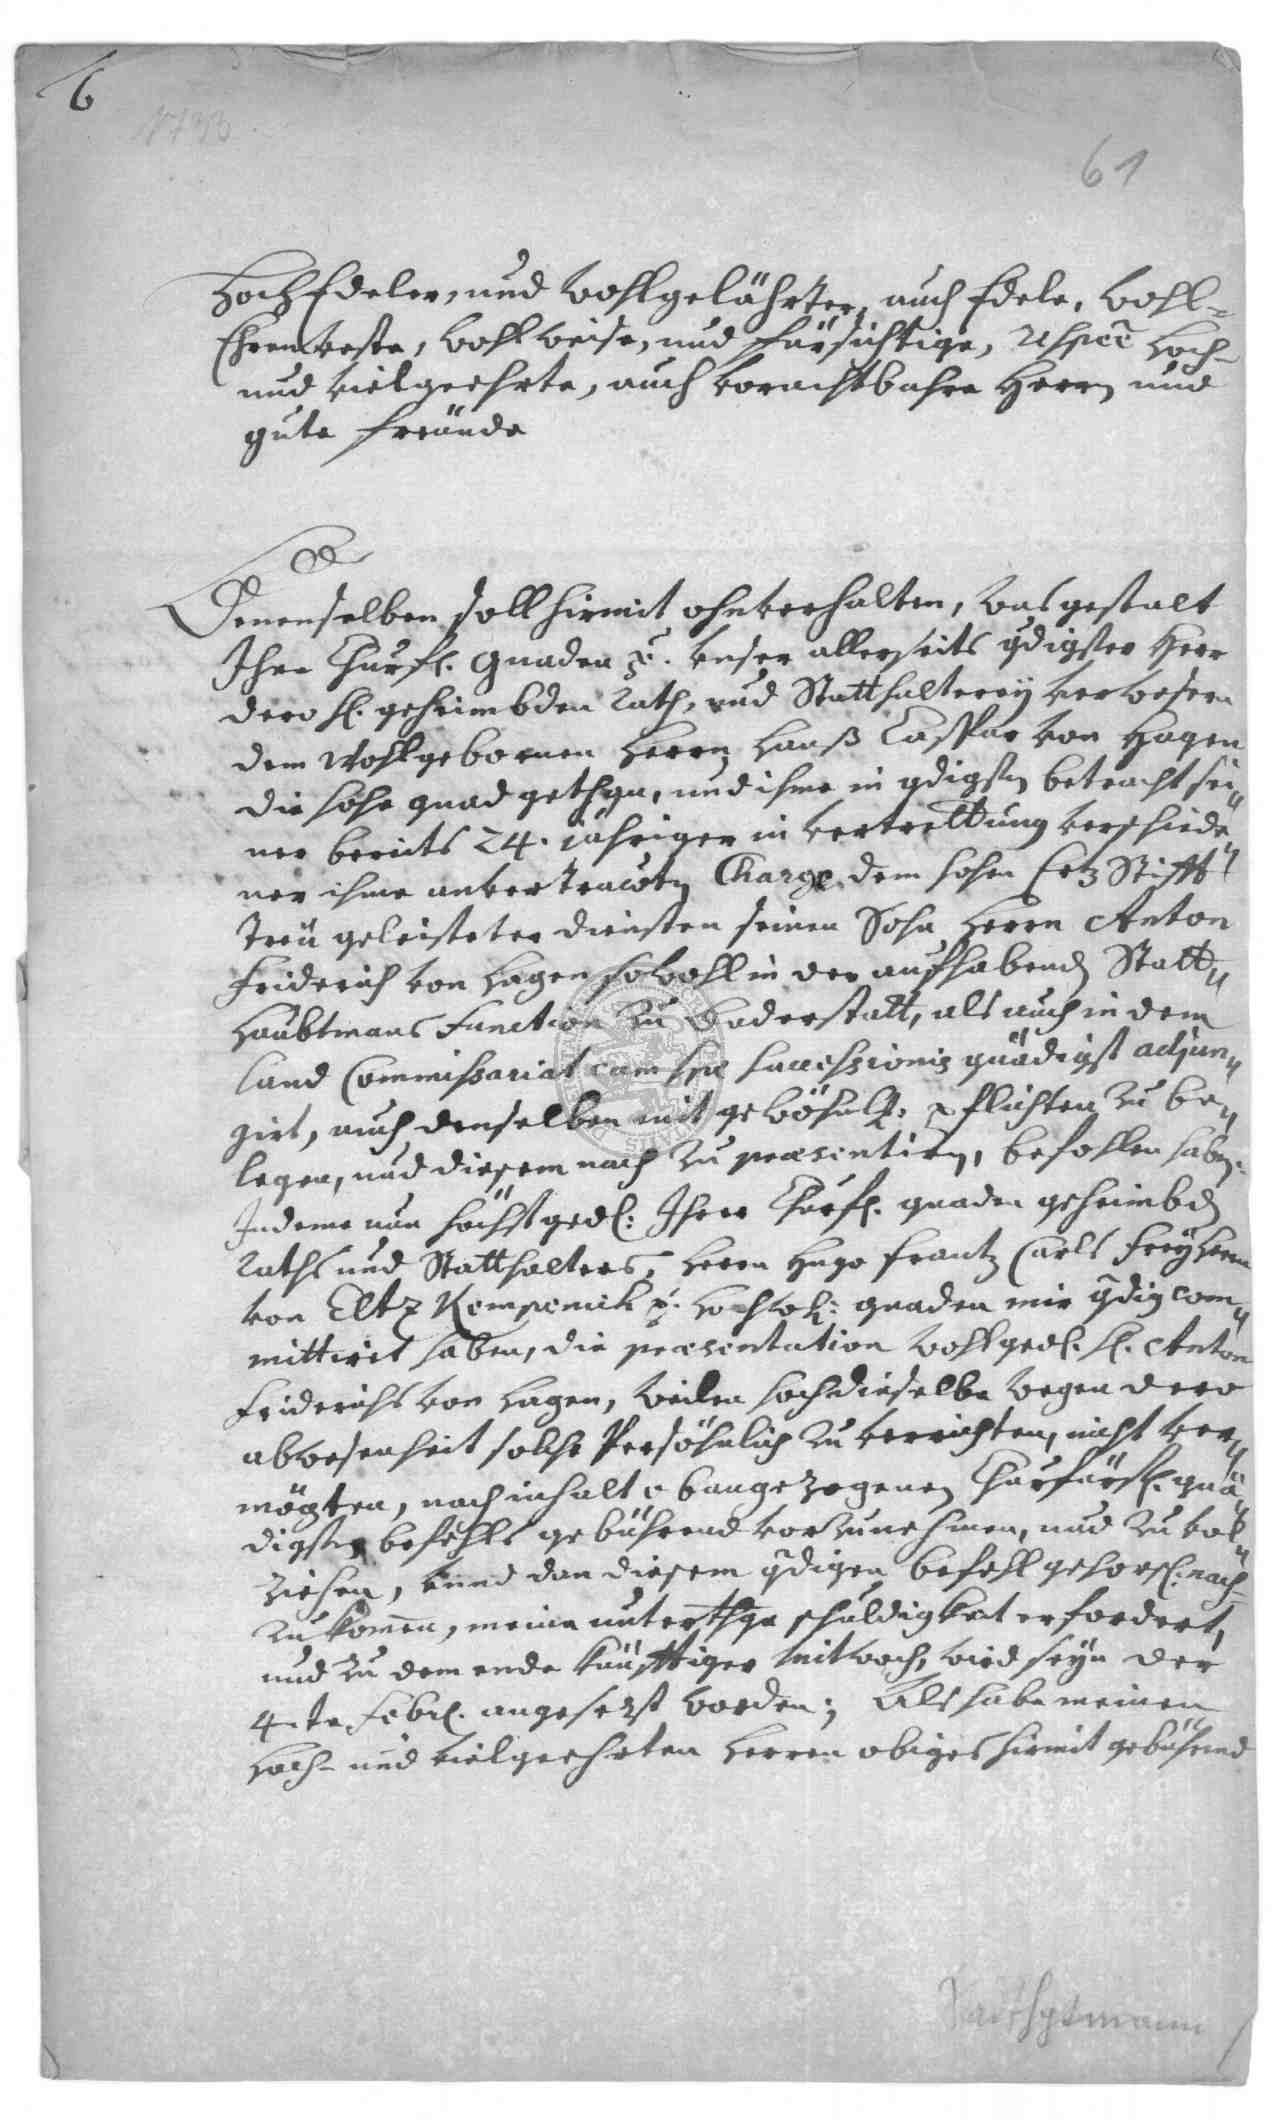 6
1733
61
Hoch Edeler, und wohlgelährter, auch Edele, wohl-
Ehrenveste, wohlweise, und fürsichtige, respec Hoch-
und vielgeehrte, auch vorachtbahre Herrn und
gute freünde
Denenselben soll hirmit ohnverhalten, was gestalt
Ihre Churfl. Gnaden p. unser allerseits gdigster Herr
dero H. geheimbden Rath, und Statthalterey verwesern
dem Wohlgebornen Herrn Hanß Caspar von Hagen
die hohe gnad gethan, und ihme in gdigster betracht sei„
ner bereits 24. jähriger in vertrettung verschiede„
ner ihme anvertrawten Charge dem hohen Ertz Stifft
treü geleisteter diensten seinen Sohn Herrn Anton
Friderich von Hagen sowohl in der aufhabenden Statt„
Haubtmans Function zu Duderstatt, als auch in dem
Land Commissariat cum spe successionis gnädigst adjun„
girt, auch denselben mit gewöhnl: pflichten zu be„
legen, und diesem nach zu præsentiren, befohlen haben.
Indeme nun höchstged: Ihrer Churfl. gnaden geheimbden
Raths und Statthalters, Herrn Hugo Frantz Carls Freyherrn
von Eltz Kempenich p. Hochw: gnaden mir gdig com„
mittirt haben, die præsentation wohlged. H. Anton
Friderichs von Hagen, weilen hochdieselbe wegen dero
abwesenheit solche Persöhnlich zu verrichten, nicht ver„
mögten, nach inhalt obangezogenen Churfürstl. gnä„
digsten befehls gebührend vorzunehmen, und zu vol„
ziehen, unnd dan diesem gdigen befehl gehors. nach-
zukommen, meine unterthge schuldigkeit erfordert,
und zu dem ende künfftiger mitwoch, wird seyn der
4te Febr. angesetzt worden; Als habe meinen
Hoch- und vielgeehrten Herren obiges hirmit gebührend